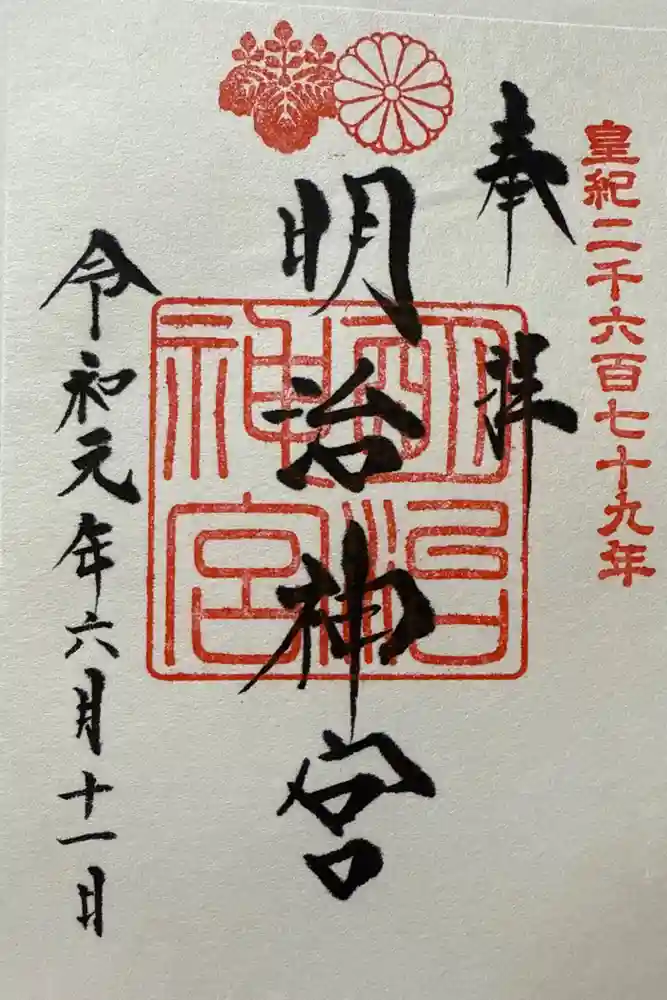 皇紀二千六百七十九年
奉拝
明治神宮
明治神宮
令和元年六月十一日